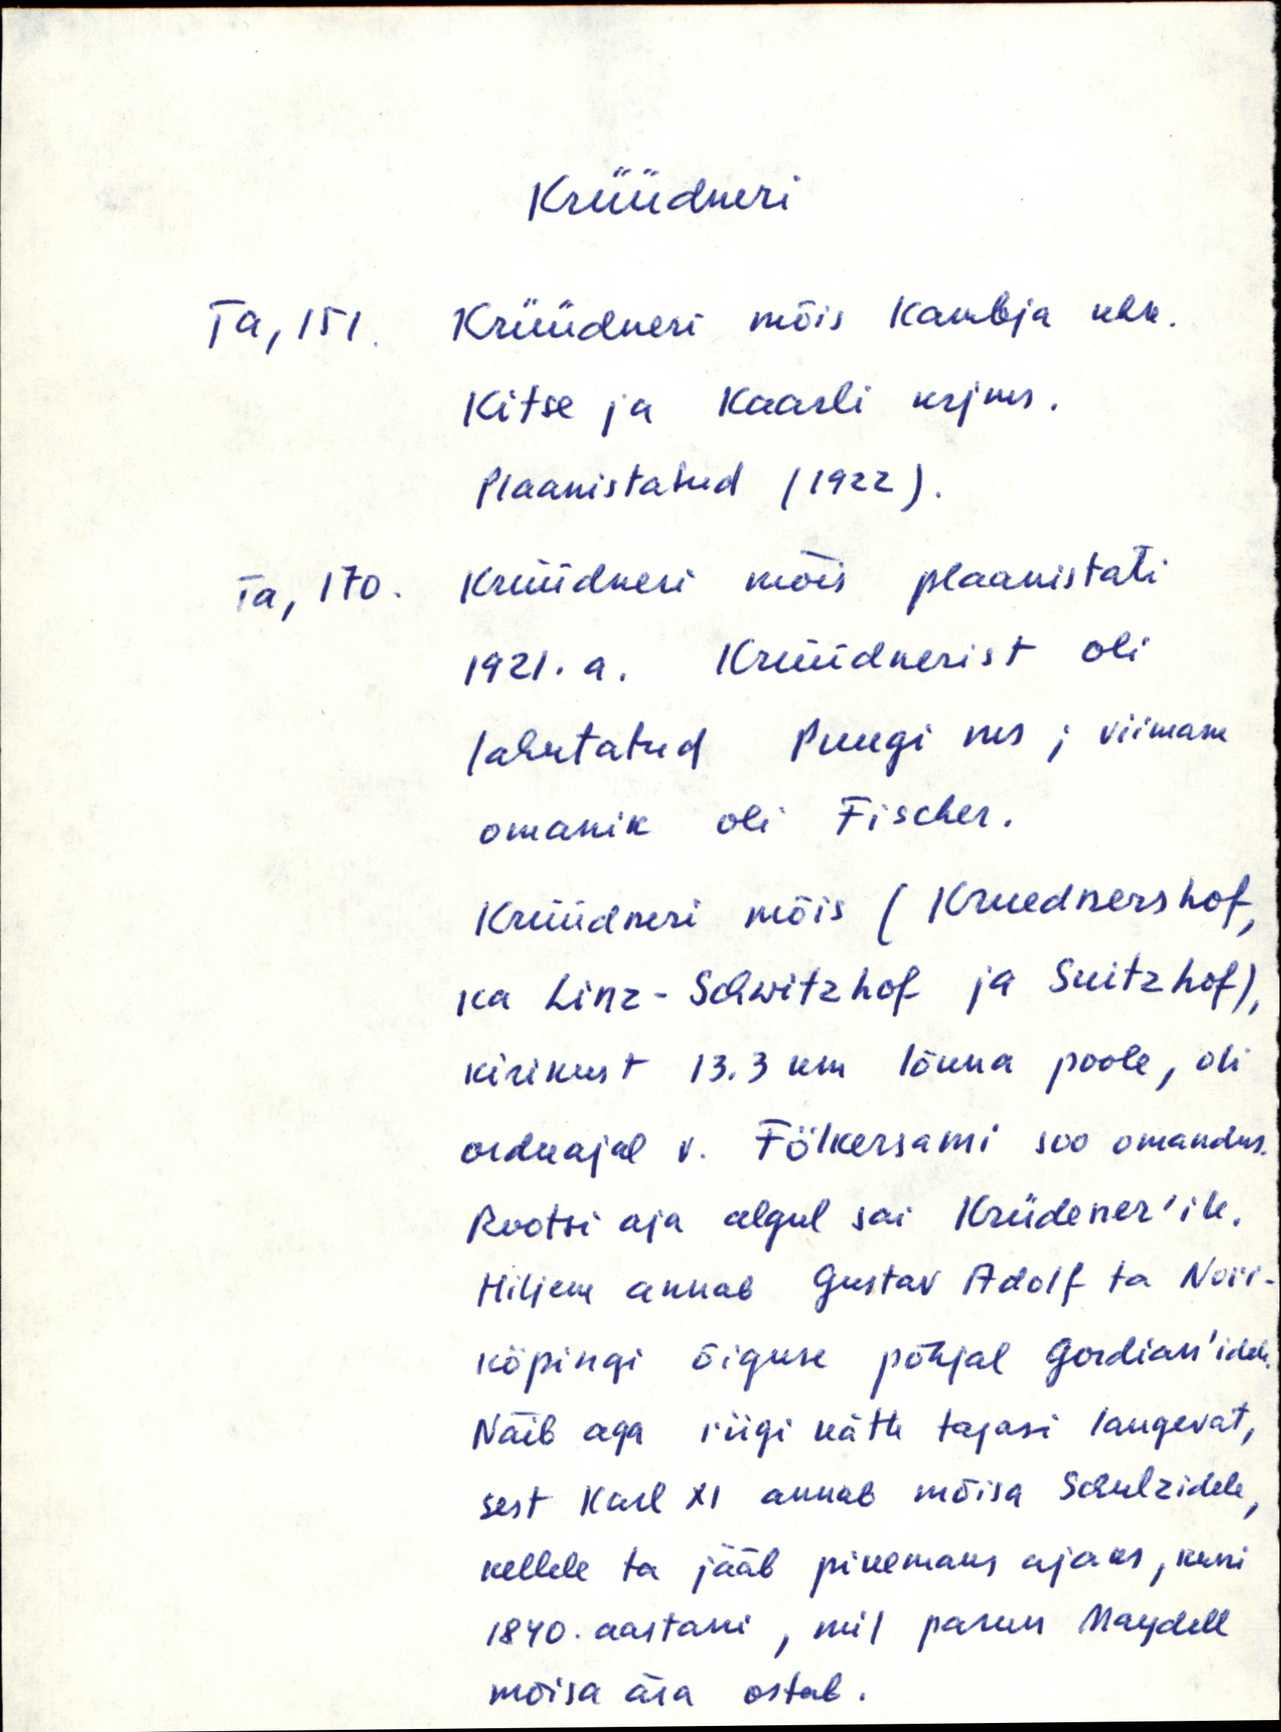 Krüüdneri
Ta, 151. Krüüdneri mõis Kambja khk.
Kitse ja Kaarli krjms.
Plaanistatud (1922).
Ta, 170. Krüüdneri mõis plaanistati
1921. a. Krüüdnerist oli
lahutatud Puugi ms ; viimase
omanik oli Fischer.
Krüüdneri mõis (Kruednershof,
ka Linz-Schwitzhof ja Suitzhof),
kirikust 13.3 km lõuna poole, oli
orduajal v. Fölkersami soo omandus.
Rootsi aja algul sai Krüdener'ile.
Hiljem annab Gustav Adolf ta Norr-
köpingi õiguse põhjal Gordian'idele.
Näib aga riigi kätte tagasi langevat,
sest Karl XI annab mõisa Schulzidele,
kellele ta jääb pikemaks ajaks, kuni
1840. aastani, mil parun Maydell
mõisa ära ostab.